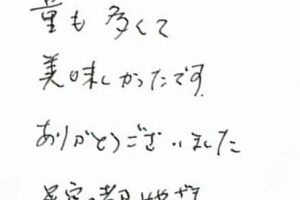 量も多くて
美味しかったです
ありがとうございました